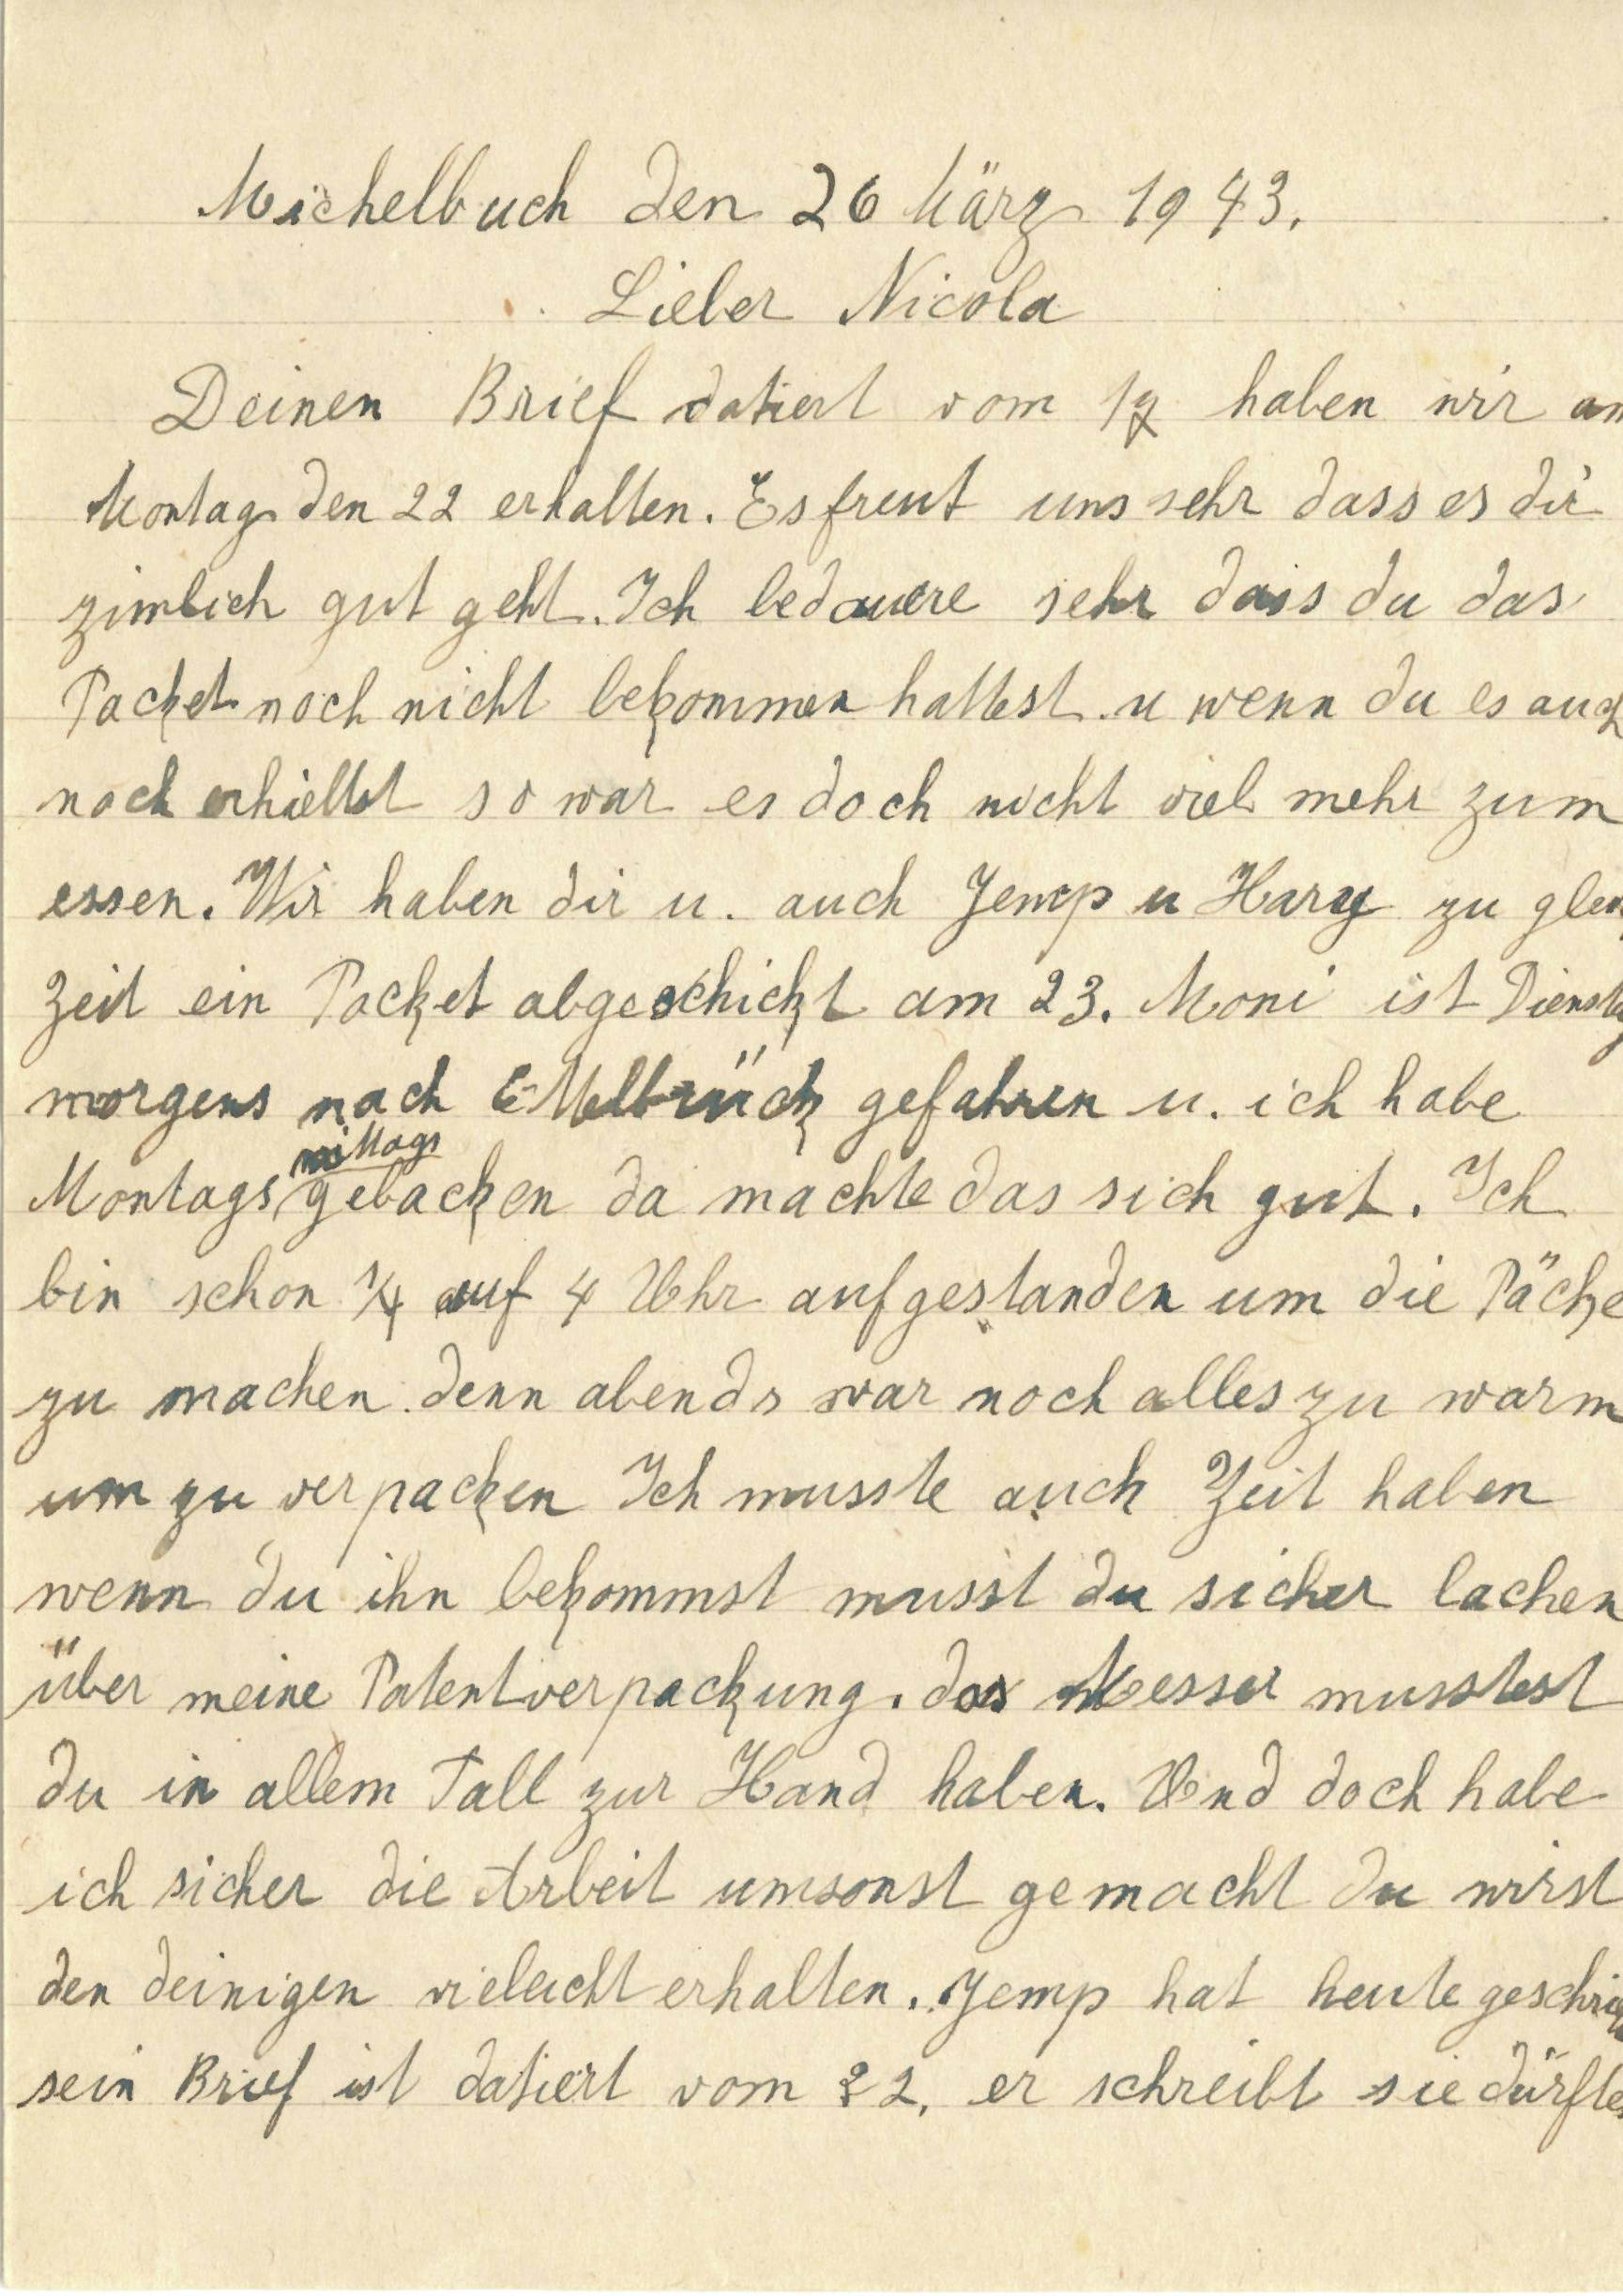 Michelbuch den 26 März 1943.
Lieber Nicola
Deinen Brief datiert vom 17 haben wir am
Montag den 22 erhalten. Es freut uns sehr dass es dir
zimlich gut geht. Ich bedauere sehr dass du das
Packet noch nicht bekommen hattest u wenn du es auch
noch erhieltst so war es doch nicht viel mehr zum
essen. Wir haben dir u. auch Jemp u Hary zu gleich
Zeit ein Packet abgeschickt am 23. Moni ist Dienstag
morgens nach Ettelbrück gefahren u. ich habe
mittags
Montags gebacken da machte das sich gut. Ich
bin schon 1/4 auf 4 Uhr aufgestanden um die Päcke
zu machen denn abends war noch alles zu warm
um zu verpacken Ich musste auch Zeit haben
wenn du ihn bekommst musst du sicher lachen
über meine Patentverpackung. das Messer musstest
du in allem Fall zur Hand haben. Und doch habe
ich sicher die Arbeit umsonst gemacht du wirst
den deinigen vieleicht erhalten. Jemp hat heute
sein Brief ist datiert vom 22. er schreibt sie dürften